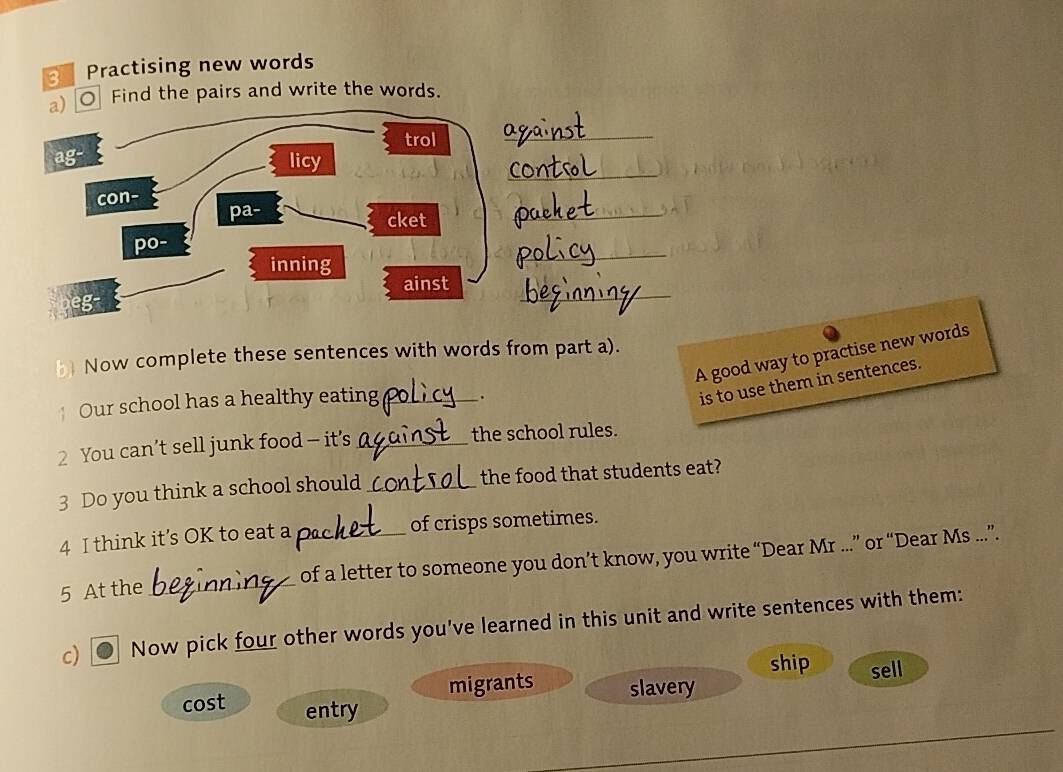 3 Practising new words
a) Find the pairs and write the words.
ag- trol against
licy control
con- pa- cket packet
po- policy
inning ainst
beg- beginning
b) Now complete these sentences with words from part a).
A good way to practise new words
is to use them in sentences.
1 Our school has a healthy eating policy.
2 You can't sell junk food – it's against the school rules.
3 Do you think a school should control the food that students eat?
4 I think it's OK to eat a packet of crisps sometimes.
5 At the beginning of a letter to someone you don't know, you write “Dear Mr ...” or “Dear Ms ...”.
c) Now pick four other words you've learned in this unit and write sentences with them:
cost entry migrants slavery ship sell